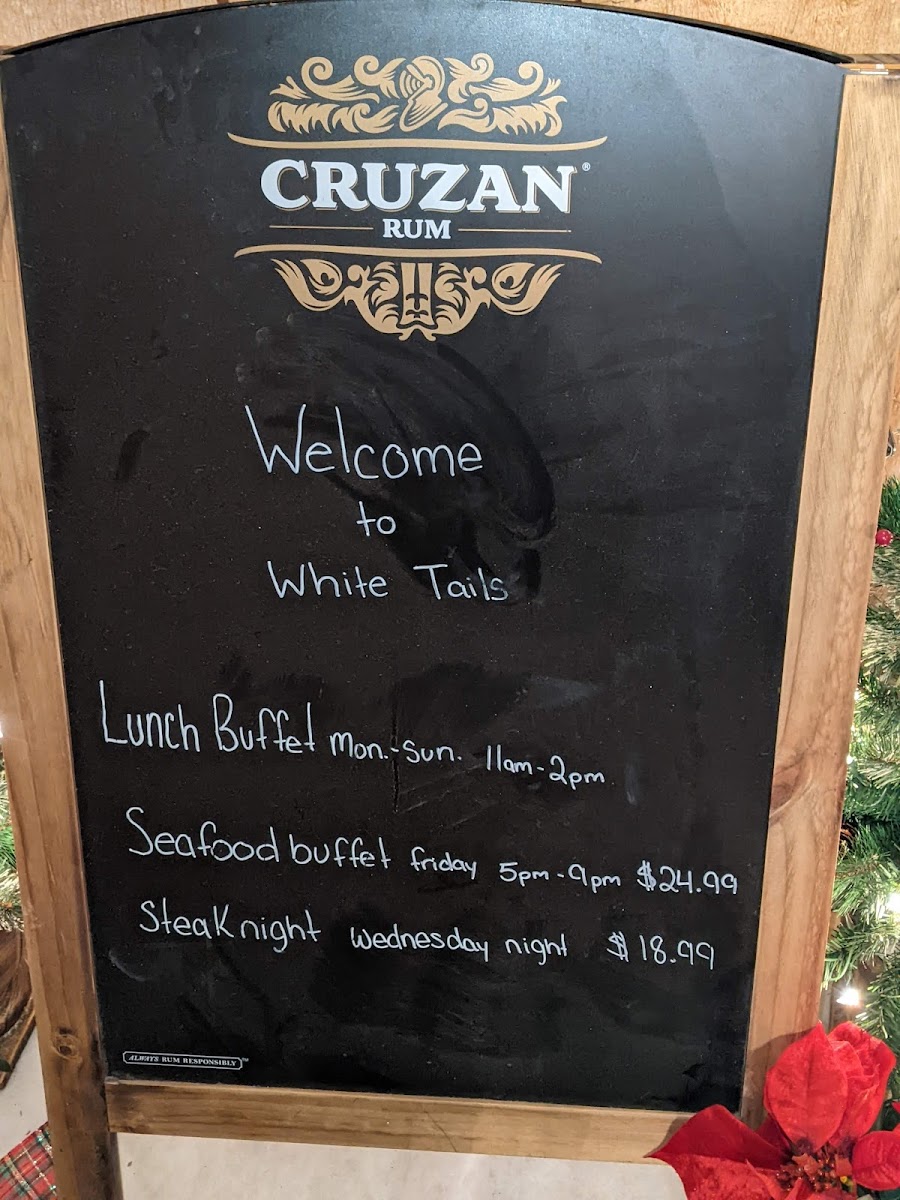 CRUZAN®
RUM
Welcome
to
White Tails
Lunch Buffet Mon.-Sun. 11am-2pm
Seafood buffet friday 5pm-9pm $24.99
Steak night Wednesday night $18.99
ALWAYS RUM RESPONSIBLY™